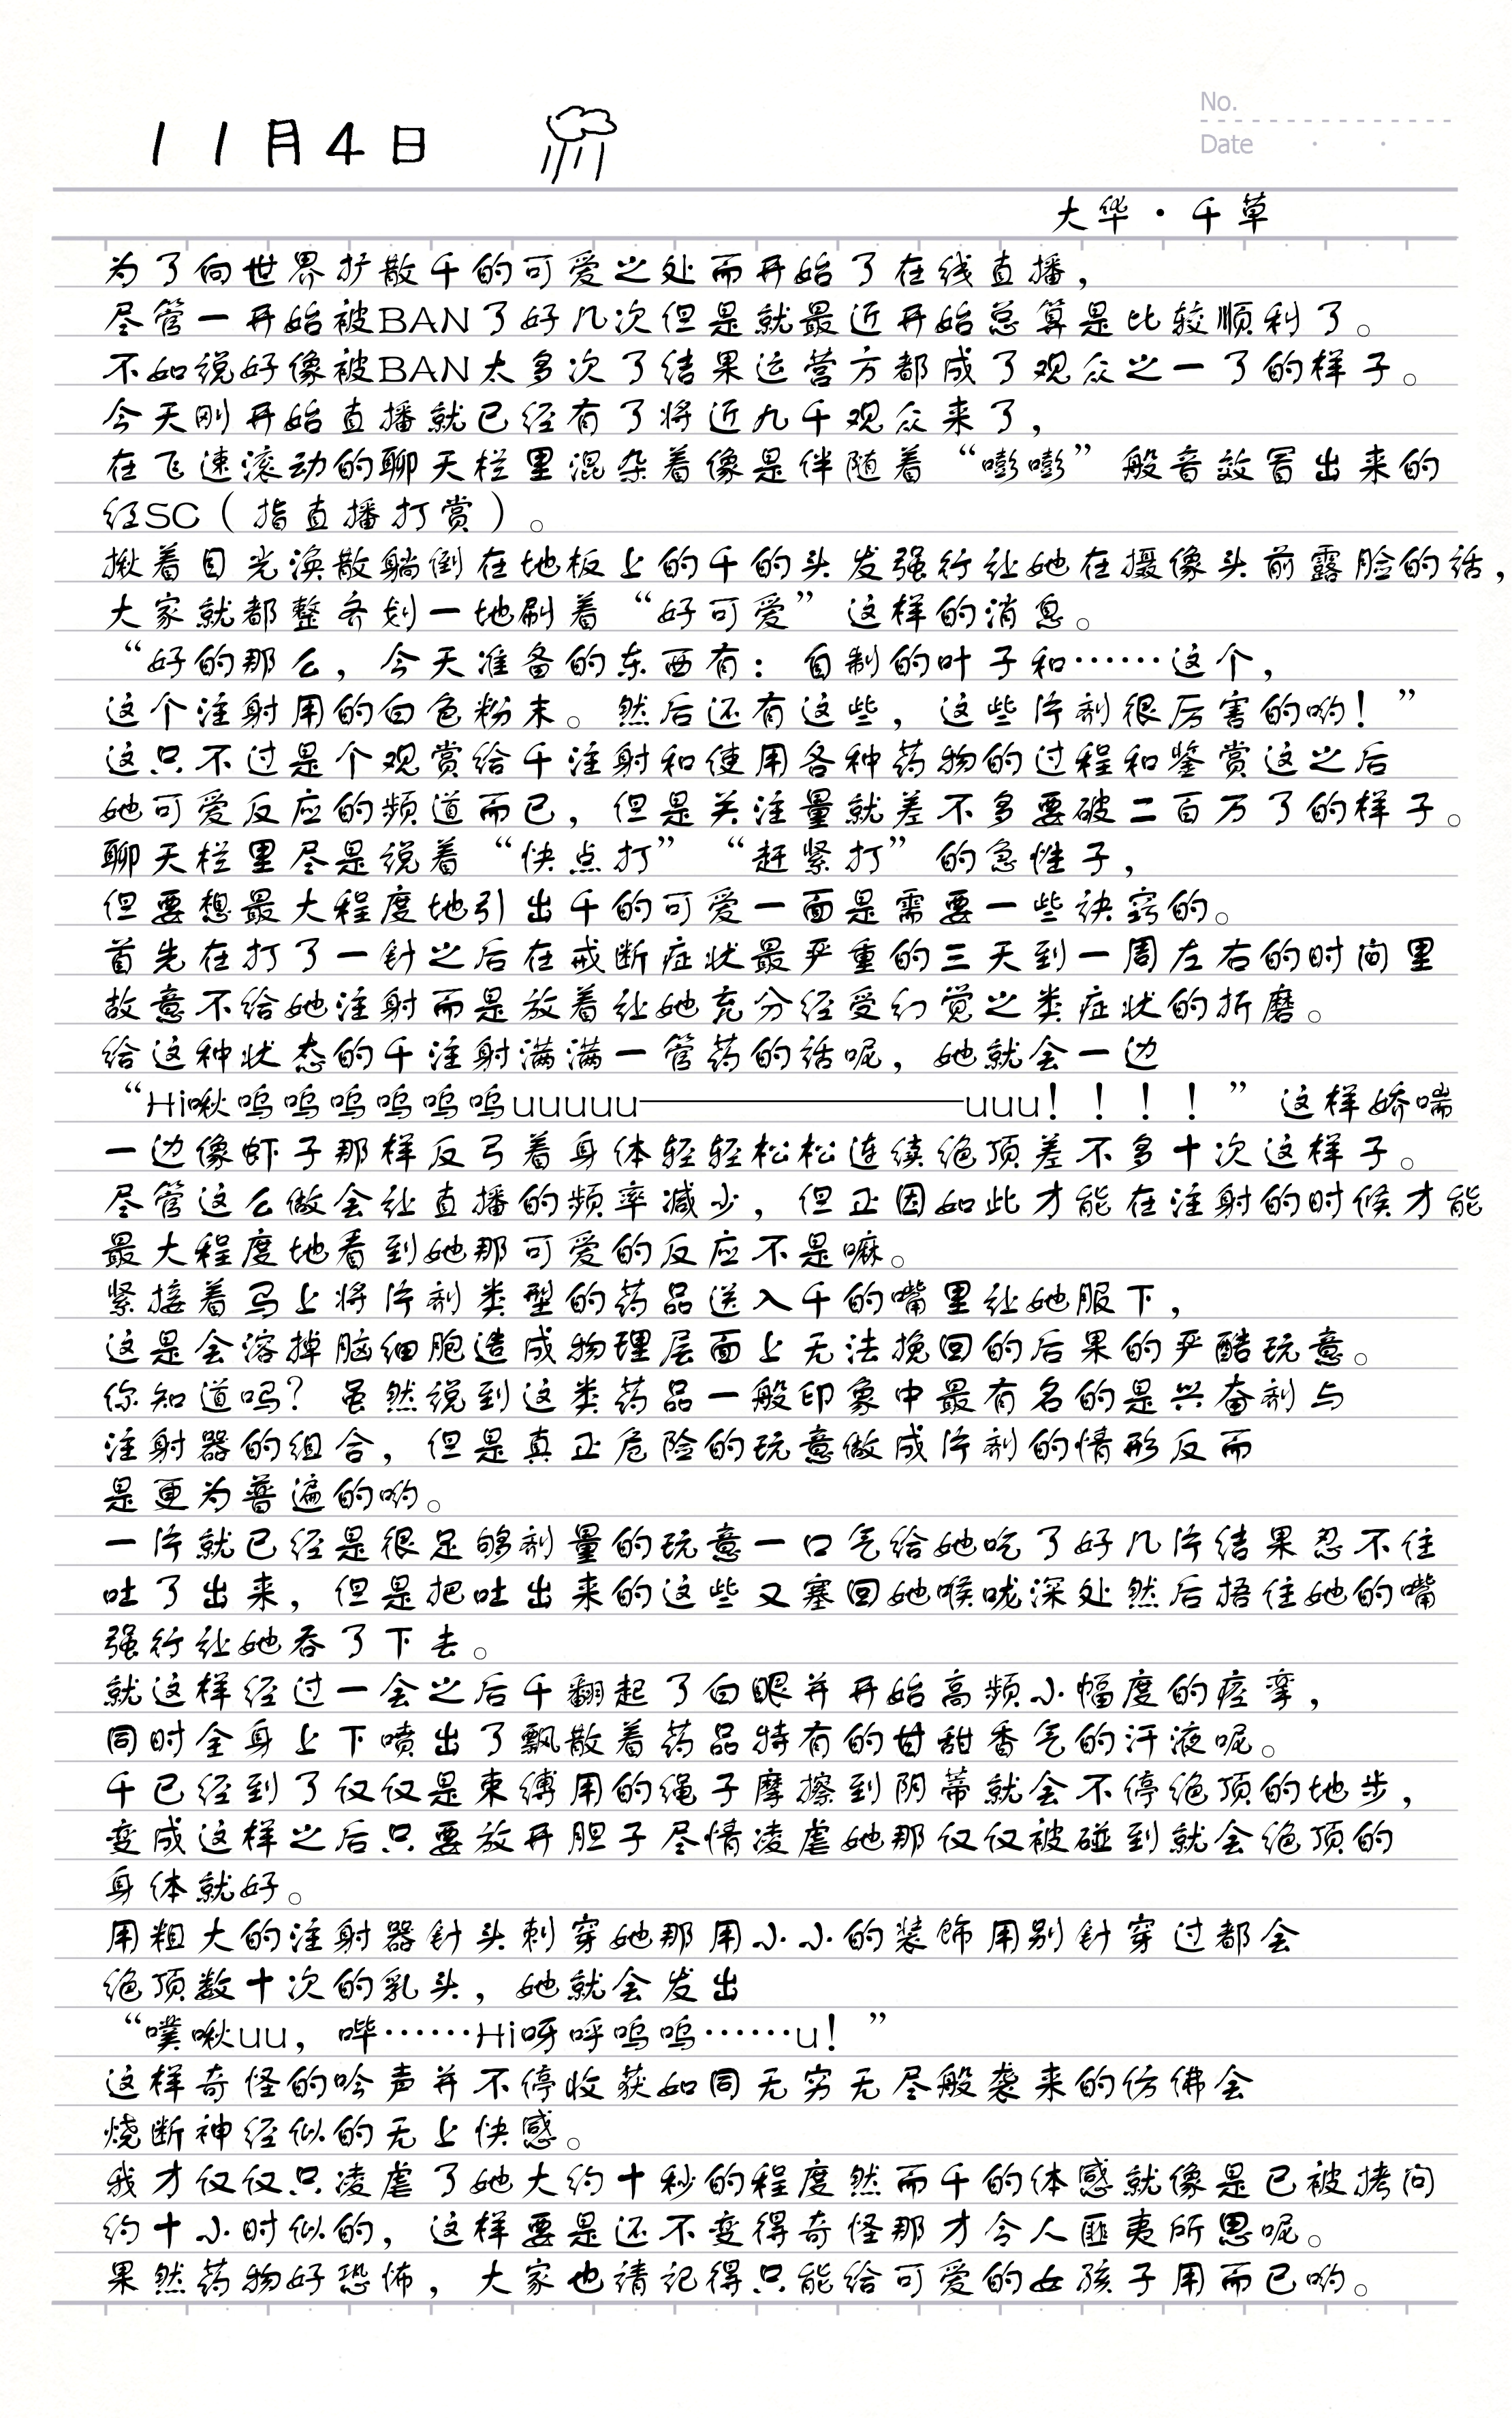 11月4日
No.
Date
大华·千草
为了向世界扩散千的可爱之处而开始了在线直播，
尽管一开始被BAN了好几次但是就最近开始总算是比较顺利了。
不如说好像被BAN太多次了结果运营方都成了观众之一了的样子。
今天刚开始直播就已经有了将近九千观众来了，
在飞速滚动的聊天栏里混杂着像是伴随着“嘭嘭”般音效冒出来的
红SC（指直播打赏）。
揪着目光涣散躺倒在地板上的千的头发强行让她在摄像头前露脸的话，
大家就都整齐划一地刷着“好可爱”这样的消息。
“好的那么，今天准备的东西有：自制的叶子和……这个，
这个注射用的白色粉末。然后还有这些，这些片剂很厉害的哟！”
这只不过是个观赏给千注射和使用各种药物的过程和鉴赏这之后
她可爱反应的频道而已，但是关注量就差不多要破二百万了的样子。
聊天栏里尽是说着“快点打”“赶紧打”的急性子，
但要想最大程度地引出千的可爱一面是需要一些诀窍的。
首先在打了一针之后在戒断症状最严重的三天到一周左右的时间里
故意不给她注射而是放着让她充分经受幻觉之类症状的折磨。
给这种状态的千注射满满一管药的话呢，她就会一边
“Hi啾呜呜呜呜呜呜uuuuu———————uuu！！！！”这样娇喘
一边像虾子那样反弓着身体轻轻松松连续绝顶差不多十次这样子。
尽管这么做会让直播的频率减少，但正因如此才能在注射的时候才能
最大程度地看到她那可爱的反应不是嘛。
紧接着马上将片剂类型的药品送入千的嘴里让她服下，
这是会溶掉脑细胞造成物理层面上无法挽回的后果的严酷玩意。
你知道吗？虽然说到这类药品一般印象中最有名的是兴奋剂与
注射器的组合，但是真正危险的玩意做成片剂的情形反而
是更为普遍的哟。
一片就已经是很足够剂量的玩意一口气给她吃了好几片结果忍不住
吐了出来，但是把吐出来的这些又塞回她喉咙深处然后捂住她的嘴
强行让她吞了下去。
就这样经过一会之后千翻起了白眼并开始高频小幅度的痉挛，
同时全身上下喷出了飘散着药品特有的甘甜香气的汗液呢。
千已经到了仅仅是束缚用的绳子摩擦到阴蒂就会不停绝顶的地步，
变成这样之后只要放开胆子尽情凌虐她那仅仅被碰到就会绝顶的
身体就好。
用粗大的注射器针头刺穿她那用小小的装饰用别针穿过都会
绝顶数十次的乳头，她就会发出
“噗啾uu，哔……Hi呀呼呜呜……u！”
这样奇怪的吟声并不停收获如同无穷无尽般袭来的仿佛会
烧断神经似的无上快感。
我才仅仅只凌虐了她大约十秒的程度然而千的体感就像是已被拷问
约十小时似的，这样要是还不变得奇怪那才令人匪夷所思呢。
果然药物好恐怖，大家也请记得只能给可爱的女孩子用而已哟。